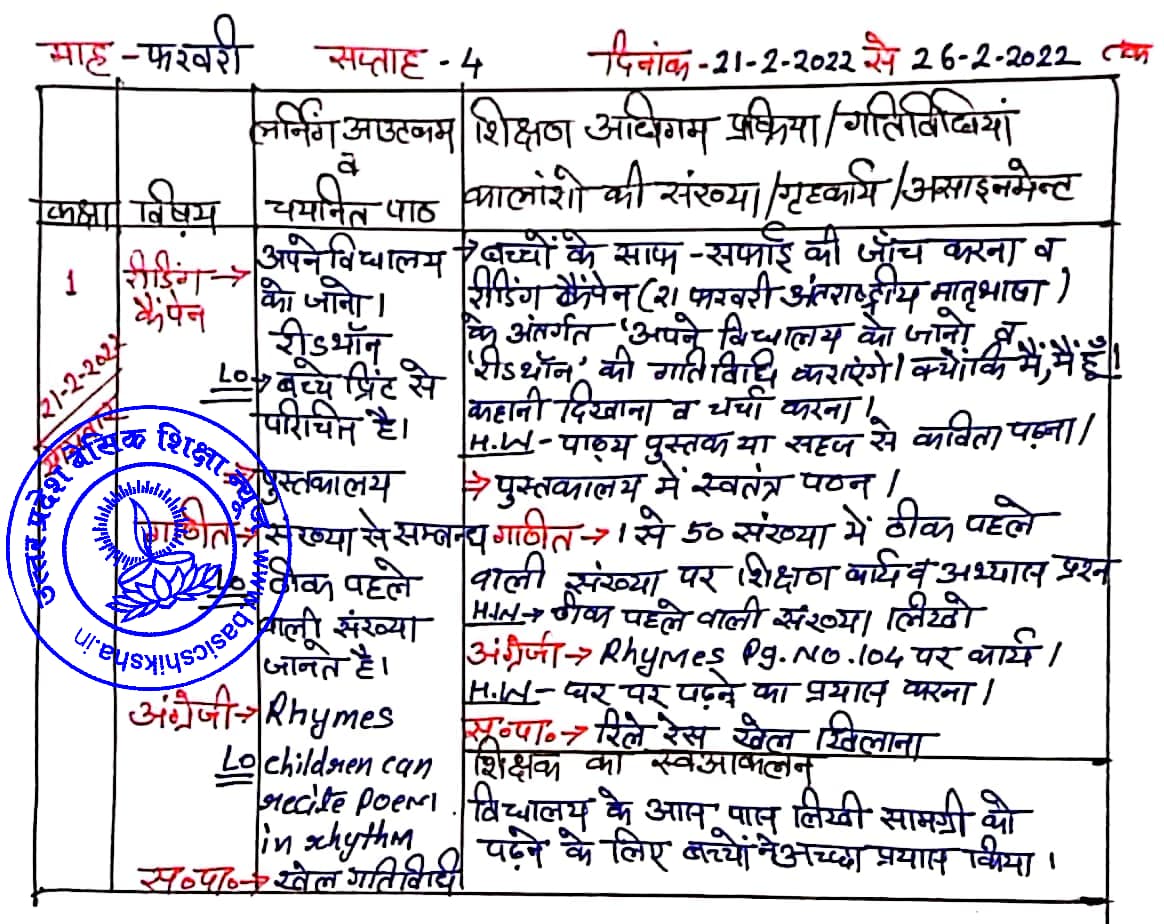 माह - फरवरी सप्ताह - 4 दिनांक - 21-2-2022 से 26-2-2022 तक
कक्षा
विषय
लर्निंग आउटकम
व
चयनित पाठ
शिक्षण अधिगम प्रक्रिया/गतिविधियां
कालांशो की संख्या/गृहकार्य/असाइनमेन्ट
1
21-2-2022
रीडिंग →
कैंपेन
अपने विद्यालय
को जानो।
रीडथॉन
LO → बच्चे प्रिंट से
परिचित है।
→ पुस्तकालय
गणित → संख्या से सम्बन्ध
LO ठीक पहले
वाली संख्या
जानते है।
अंग्रेजी → Rhymes
LO children can
recite Poem.
in rhythm
स०पा० → खेल गतिविधि
→ बच्चों के साफ-सफाई की जाँच करना व
रीडिंग कैंपेन (21 फरवरी अंतराष्ट्रीय मातृभाषा)
के अंतर्गत 'अपने विद्यालय को जानो व
'रीडथॉन' की गतिविधि कराएंगे। क्योंकि मैं, मैं हूँ।
कहानी दिखाना व चर्चा करना।
H.W - पाठ्य पुस्तक या सहज से कविता पढ़ना।
→ पुस्तकालय में स्वतंत्र पठन।
गणित → 1 से 50 संख्या में ठीक पहले
वाली संख्या पर शिक्षण कार्य व अभ्यास प्रश्न
H.W → ठीक पहले वाली संख्या लिखो
अंग्रेजी → Rhymes Pg.No.104 पर कार्य।
H.W - घर पर पढ़ने का प्रयास करना।
स०पा० → रिले रेस खेल खिलाना
शिक्षक का स्वआकलन
विद्यालय के आस पास लिखी सामग्री को
पढ़ने के लिए बच्चों ने अच्छा प्रयास किया।
उत्तर प्रदेश बेसिक शिक्षा न्यूज
www.basicshiksha.in